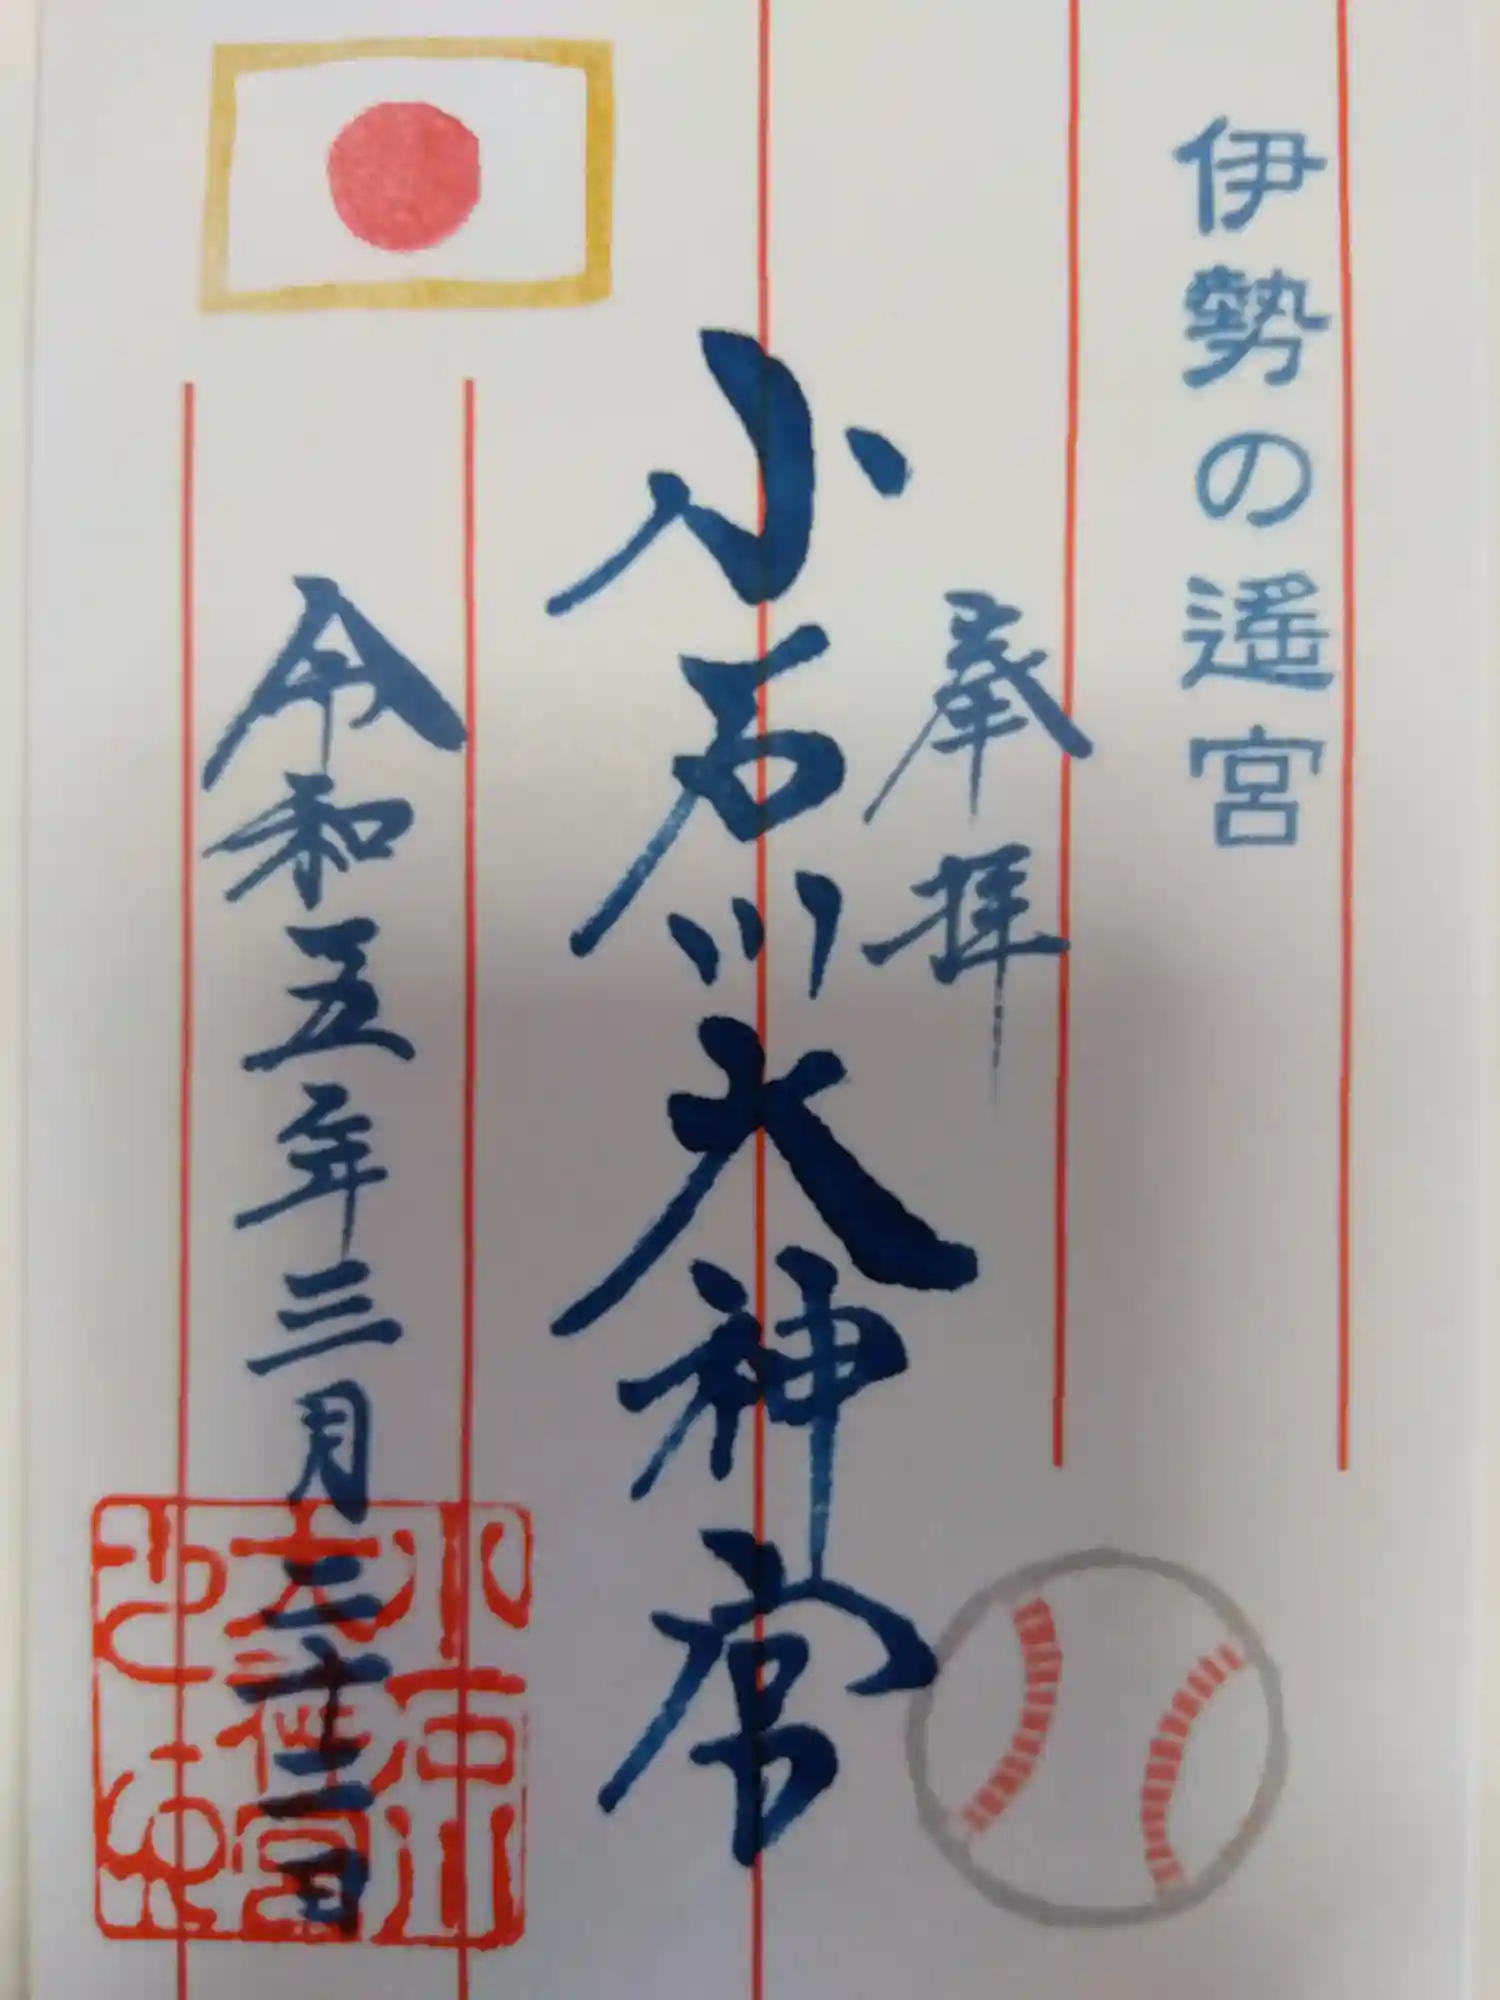 伊勢の遥宮
奉拝
小石川大神宮
令和五年三月二十二日
小石川
大神宮